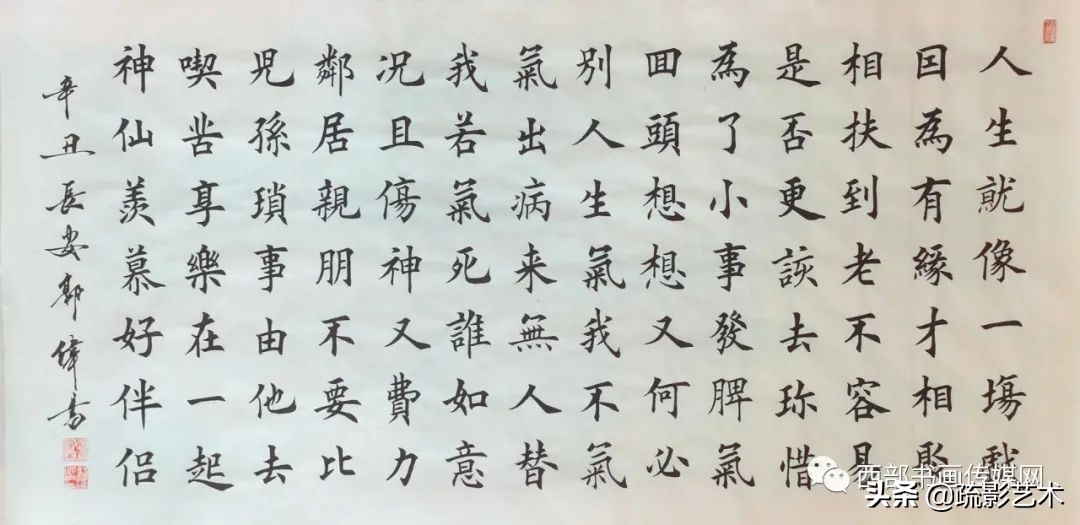 人生就像一塲戲
囙為有緣才相聚
相扶到老不容易
是否更該去珎惜
為了小事發脾氣
囬頭想想又何必
别人生氣我不氣
氣出病来無人替
我若氣死誰如意
况且傷神又費力
鄰居親朋不要比
児孫瑣事由他去
喫苦享樂在一起
神仙羨慕好伴侣
辛丑長安郭偉書
西部书画传媒网
头条@疏影艺术